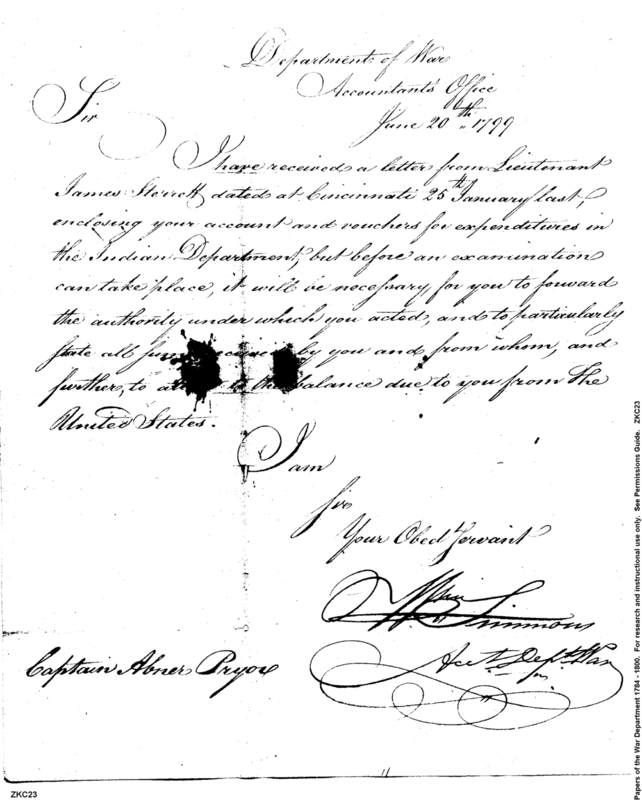 Department of War
Accountant's Office
June 20th 1799
Sir
I have received a letter from Lieutenant
James Sterrett dated at Cincinnati 25th January last,
enclosing your account and vouchers for expenditures in
the Indian Department, but before an examination
can take place, it will be necessary for you to forward
the authority under which you acted, and to particularly
state all by you and from whom, and
further, to the balance due to you from the
United States.
I am
Sir
Your Obed.t Servant
Wm Simmons
Acct. Dept. War
Captain Abner Pryor
ZKC23
Papers of the War Department 1784 - 1800. For research and instructional use only. See Permissions Guide. ZKC23